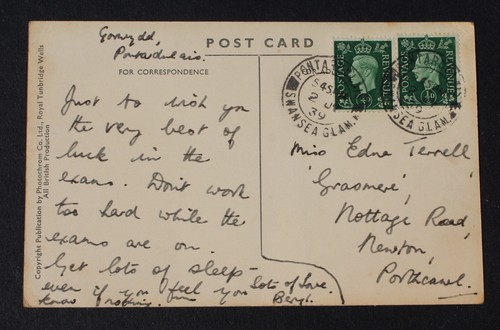 Gorwydd,
Pontardulais.
POST CARD
FOR CORRESPONDENCE
Just to wish you
the very best of
luck in the
exams. Don't work
too hard while the
exams are on.
Get lots of sleep
even if you feel you
know nothing.
lots of love.
Beryl.
Miss Edna Terrell
'Grasmere',
Nottage Road,
Newton,
Porthcawl.
POSTAGE REVENUE
POSTAGE REVENUE
SWANSEA GLAM.
39
SWANSEA GLAM.
Copyright Publication by Photochrom Co. Ltd., Royal Tunbridge Wells
All British Production